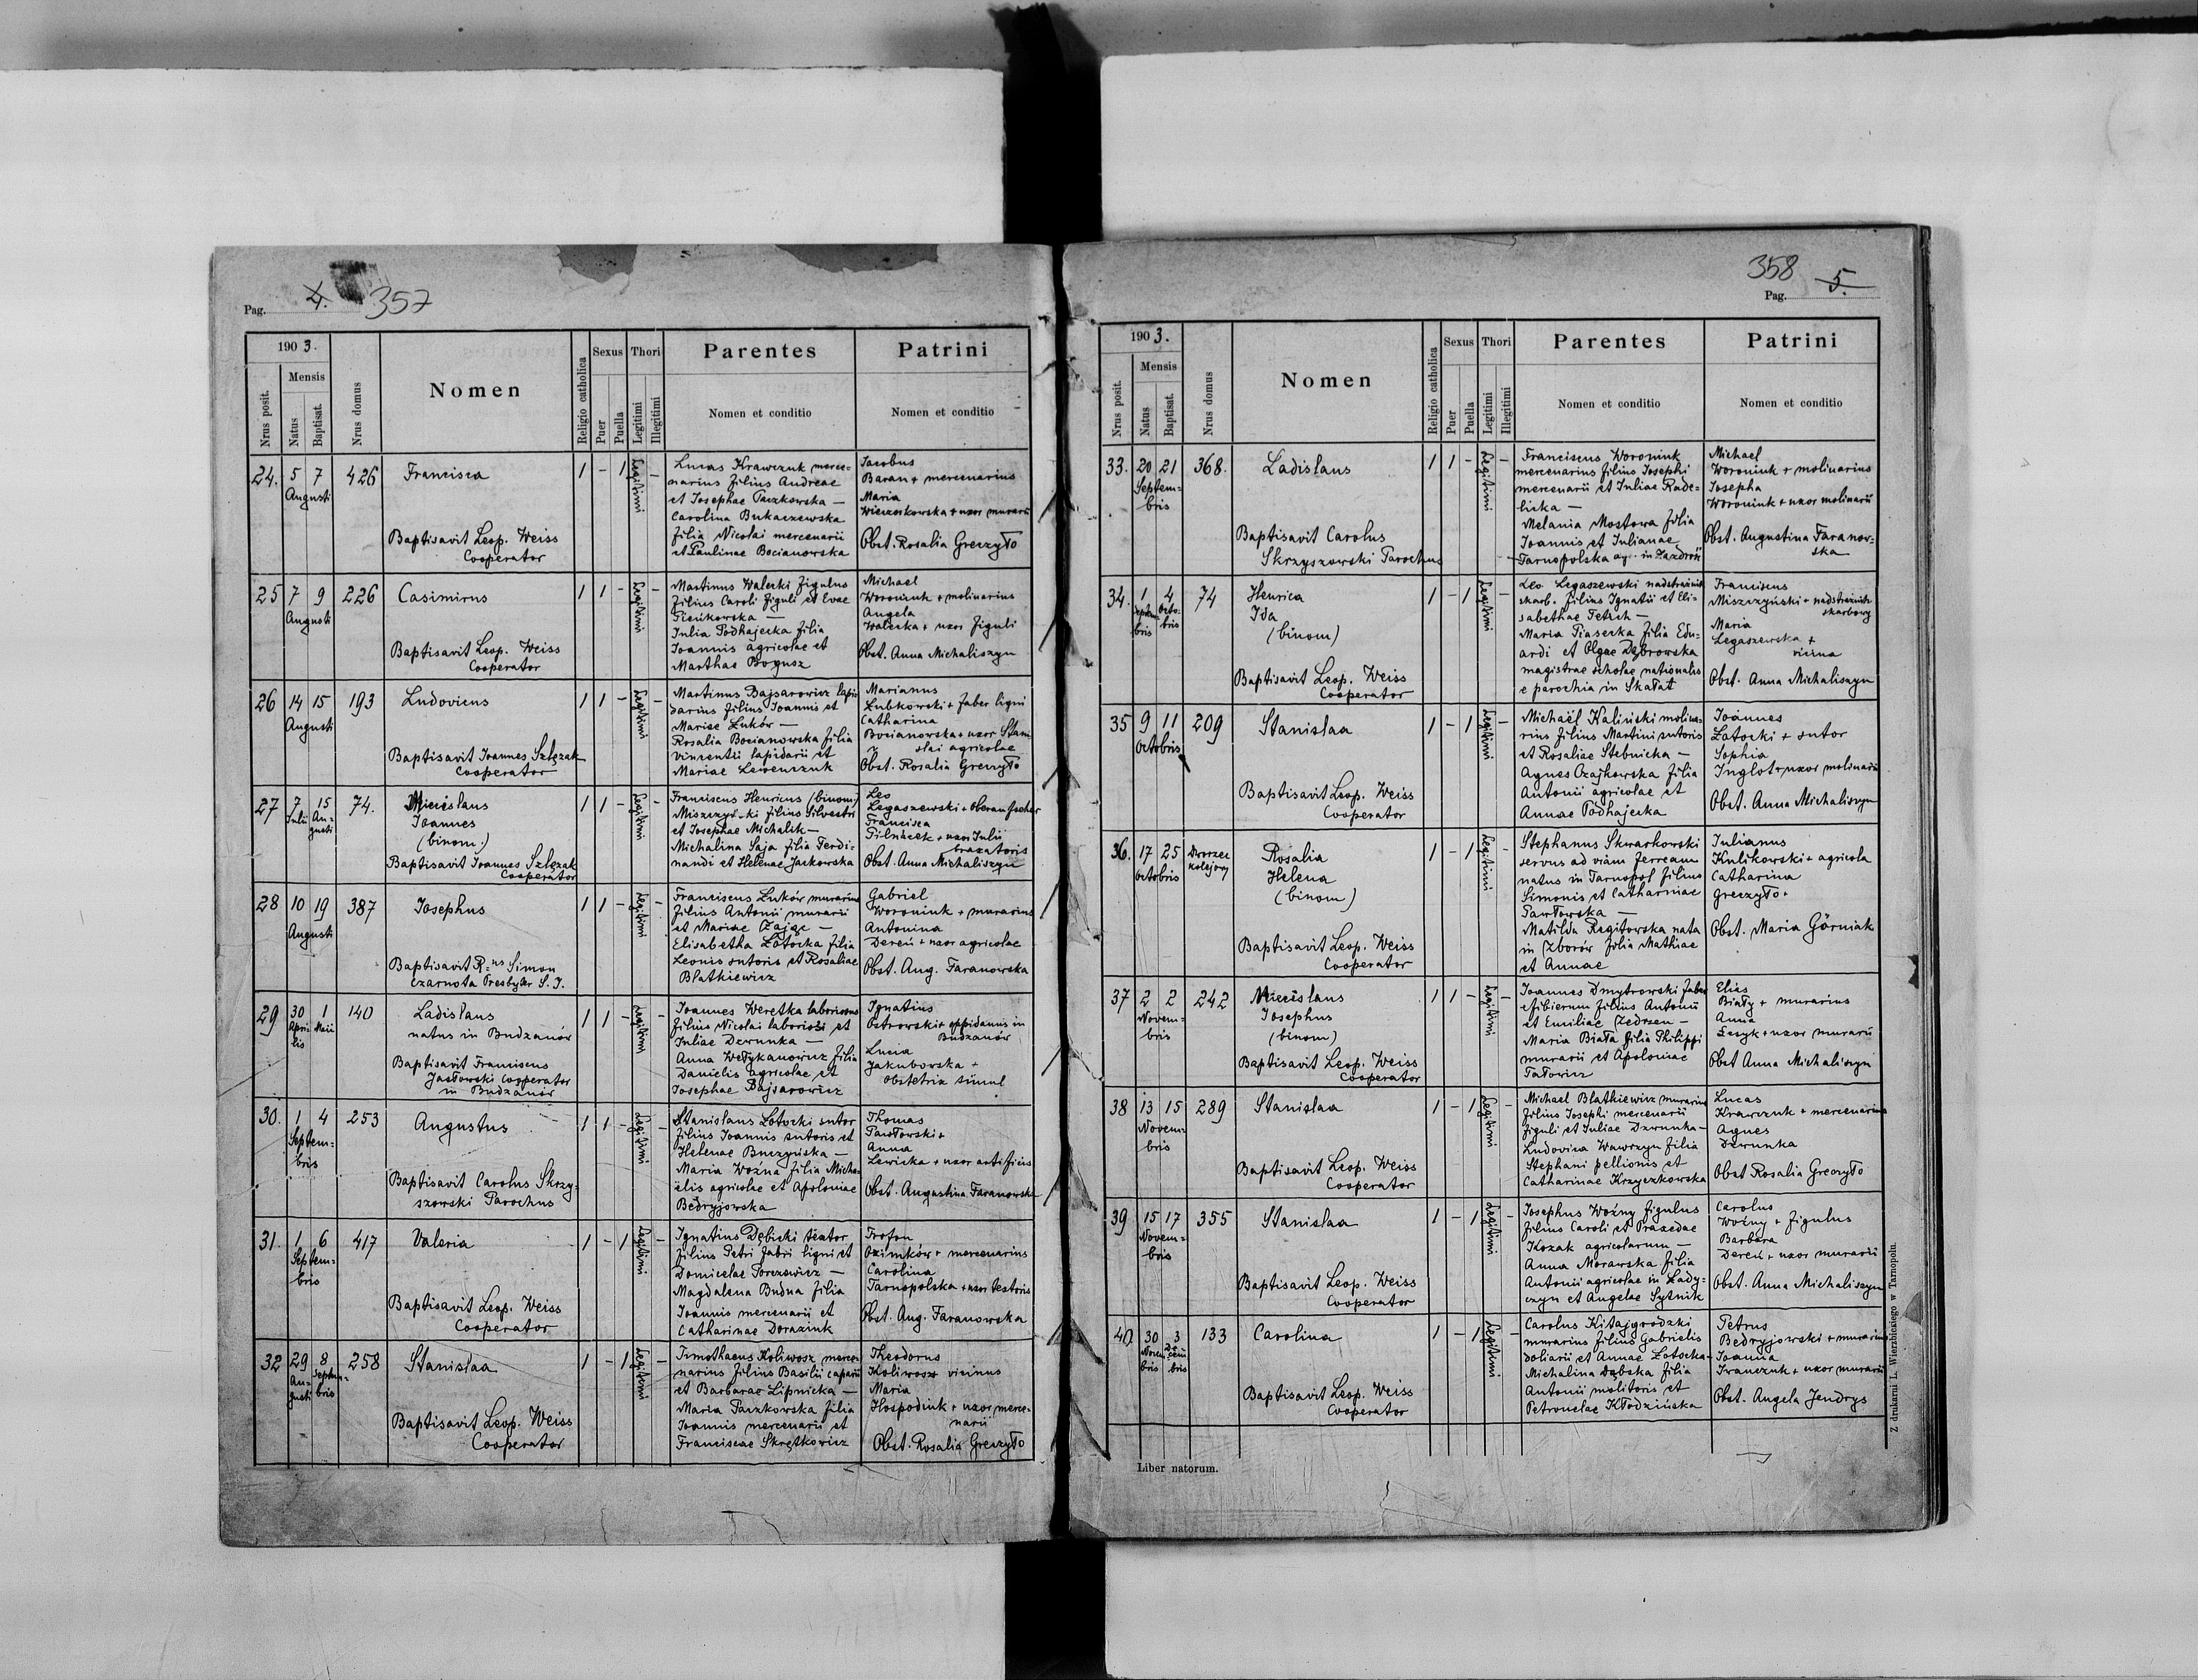 Pag. 4. 357
1903.
Nrus posit.
Mensis
Natus
Baptisat.
Nrus domus
Nomen
Religio catholica
Sexus
Puer
Puella
Thori
Legitimi
Illegitimi
Parentes
Nomen et conditio
Patrini
Nomen et conditio
24. 5 7 Augusti 426 Francisca 1 - 1 Legitimi -
Baptisavit Leop. Weiss
Cooperator
Lucas Krawczuk merce-
narius filius Andreae
et Josephae Paczkowska —
Carolina Bukaczewska
filia Nicolai mercenarii
et Paulinae Bocianowska
Jacobus
Baran + mercenarius
Maria
Wieczorkowska + uxor murarii
Obst. Rosalia Greczyło
25 7 9 Augusti 226 Casimirus 1 1 - Legitimi -
Baptisavit Leop. Weiss
Cooperator
Martinus Walecki figulus
filius Caroli figuli et Evae
Pieńkowska —
Julia Podhajecka filia
Joannis agricolae et
Marthae Bognsz
Michael
Woroniuk + molinarius
Angela
Walecka + uxor figuli
Obst. Anna Michaliszyn
26 14 15 Augusti 193 Ludovicus 1 1 - Legitimi -
Baptisavit Joannes Szlęzak
Cooperator
Martinus Bajsarowicz lapi-
darius filius Joannis et
Mariae Łuków —
Rosalia Bocianowska filia
Vincentii lapidarii et
Mariae Lewenczuk
Marianus
Łubkowski + faber ligni
Catharina
Bocianowska + uxor Stani-
slai agricolae
Obst. Rosalia Greczyło
27 7 Julii 15 Augusti 74. Miecislaus 1 1 - Legitimi -
Joannes
(binom.)
Baptisavit Joannes Szlęzak
Cooperator
Franciscus Henricus (binom)
Miszczyński filius Silvestri
et Josephae Michalik —
Michalina Saja filia Ferdi-
nandi et Helenae Jackowska
Leo
Legaszewski + Oberaufseher
Francisca
Pilniček + uxor Julii
braxatoris
Obst. Anna Michaliszyn
28 10 19 Augusti 387 Josephus 1 1 - Legitimi -
Baptisavit R-ns Simon
Czarnota Presbyter S. J.
Franciscus Łuków murarius
filius Antonii murarii
et Mariae Zając —
Elisabetha Łotocka filia
Leonis sutoris et Rosaliae
Błatkiewicz
Gabriel
Woroniuk + murarius
Antonina
Dereń + uxor agricolae
Obst. Aug. Taranowska
29 30 Aprilis 1 Maii 140 Ladislaus 1 1 - Legitimi -
natus in Budzanów
Baptisavit Franciscus
Jasłowski Cooperator
in Budzanów
Joannes Weretka laboriosus
filius Nicolai laboriosi et
Juliae Dzwunka —
Anna Wełykanowicz filia
Danielis agricolae et
Josephae Bajsarowicz
Ignatius
Ostrowski + oppidanus in
Budzanów
Lucia
Jakubowska +
obstetrix simul
30. 1 4 Septembris 253 Augustus 1 1 - Legitimi -
Baptisavit Carolus Skrzy-
szowski Parochus
Stanislaus Łotocki sutor
filius Joannis sutoris et
Helenae Buczyńska —
Maria Woźna filia Micha-
elis agricolae et Apoloniae
Bedryjowska
Thomas
Pawłowski +
Anna
Lewicka + uxor artificis
Obst. Augustina Taranowska
31. 1 6 Septembris 417 Valeria 1 - 1 Legitimi -
Baptisavit Leop. Weiss
Cooperator
Ignatius Dębicki textor
filius Petri fabri ligni et
Domicelae Porczewicz —
Magdalena Budna filia
Joannis mercenarii et
Catharinae Doraziuk
Trofon
Ozimków + mercenarius
Carolina
Tarnopolska + uxor textoris
Obst. Aug. Taranowska
32 29 Augusti 8 Septembris 258 Stanislaa 1 - 1 Legitimi -
Baptisavit Leop. Weiss
Cooperator
Timothaeus Koliwosz merce-
narius filius Basilii caparii
et Barbarae Lipnicka —
Maria Paczkowska filia
Joannis mercenarii et
Franciscae Skrętkowicz
Theodorus
Koliwosz vicinus
Maria
Hospodiuk + uxor merce-
narii
Obst. Rosalia Greczyło
358
Pag. 5.
1903.
Nrus posit.
Mensis
Natus
Baptisat.
Nrus domus
Nomen
Religio catholica
Sexus
Puer
Puella
Thori
Legitimi
Illegitimi
Parentes
Nomen et conditio
Patrini
Nomen et conditio
33. 20 21 Septembris 368. Ladislaus 1 1 - Legitimi -
Baptisavit Carolus
Skrzyszowski Parochus
Franciscus Woroniuk
mercenarius filius Josephi
mercenarii et Juliae Rade-
licka —
Melania Mostowa filia
Joannis et Julianae
Tarnopolska agr. in Zazdrość
Michael
Woroniuk + molinarius
Josepha
Woroniuk + uxor molinarii
Obst. Augustina Taranow-
ska
34. 1 Septembris 4 Octobris 74 Henrica 1 - 1 Legitimi -
Ida
(binom)
Baptisavit Leop. Weiss
Cooperator
Leo Legaszewski nadstrażnik
skarb. filius Ignatii et Eli-
sabethae Fetich —
Maria Piasecka filia Edu-
ardi et Olgae Dąbrowska
magistrae scholae nationalis
e parochia in Skałat
Franciscus
Miszczyński + nadstrażnik
skarbowy
Maria
Legaszewska +
vicina
Obst. Anna Michaliszyn
35 9 11 Octobris 209 Stanislaa 1 - 1 Legitimi -
Baptisavit Leop. Weiss
Cooperator
Michaël Kaliński molina-
rius filius Martini sutoris
et Rosaliae Stebnicka —
Agnes Czajkowska filia
Antonii agricolae et
Annae Podhajecka
Joannes
Łotocki + sutor
Sophia
Inglot + uxor molinarii
Obst. Anna Michaliszyn
36. 17 25 Octobris Dworzec kolejowy Rosalia 1 - 1 Legitimi -
Helena
(binom)
Baptisavit Leop. Weiss
Cooperator
Stephanus Skwarkowski
servus ad viam ferream
natus in Tarnopol filius
Simonis et Catharinae
Pawłowska —
Matilda Regitowska nata
in Czborów filia Mathiae
et Annae
Julianus
Kulikowski + agricola
Catharina
Greczyło +
Obst. Maria Górniak
37 2 2 Novembris 242 Miecislaus 1 1 - Legitimi -
Josephus
(binom)
Baptisavit Leop. Weiss
Cooperator
Joannes Dmytrowski faber
efibierum filius Antonii
et Emiliae Zedrzen —
Maria Biała filia Philippi
murarii et Apoloniae
Fałowicz
Elias
Biały + murarius
Anna
Łesyk + uxor murarii
Obst Anna Michaliszyn
38 13 15 Novembris 289 Stanislaa 1 - 1 Legitimi -
Baptisavit Leop. Weiss
Cooperator
Michael Blatkiewicz murarius
filius Josephi mercenarii
figuli et Juliae Dzwunka —
Ludovica Wawrzyn filia
Stephani pellionis et
Catharinae Krzyczkowska
Lucas
Krawczuk + mercenarius
Agnes
Dzwunka
Obst Rosalia Greczyło
39 15 17 Novembris 355 Stanislaa 1 - 1 Legitimi -
Baptisavit Leop. Weiss
Cooperator
Josephus Woźny figulus
filius Caroli et Praxedae
Kozak agricolarum —
Anna Morawska filia
Antonii agricolae in Łady-
czyn et Angelae Sytnik
Carolus
Woźny + figulus
Barbara
Dereń + uxor murarii
Obst. Anna Michaliszyn
40. 30 Novembris 3 Decembris 133 Carolina 1 - 1 Legitimi -
Baptisavit Leop. Weiss
Cooperator
Carolus Kitajgrodzki
murarius filius Gabrielis
doliarii et Annae Łotocka —
Michalina Dąbska filia
Antonii molitoris et
Petronelae Kłodzińska
Petrus
Bedryjowski + murarius
Joanna
Iwanczuk + uxor murarii
Obst. Angela Jendrys
Liber natorum.
Z drukarni L. Wierzbickiego w Tarnopolu.